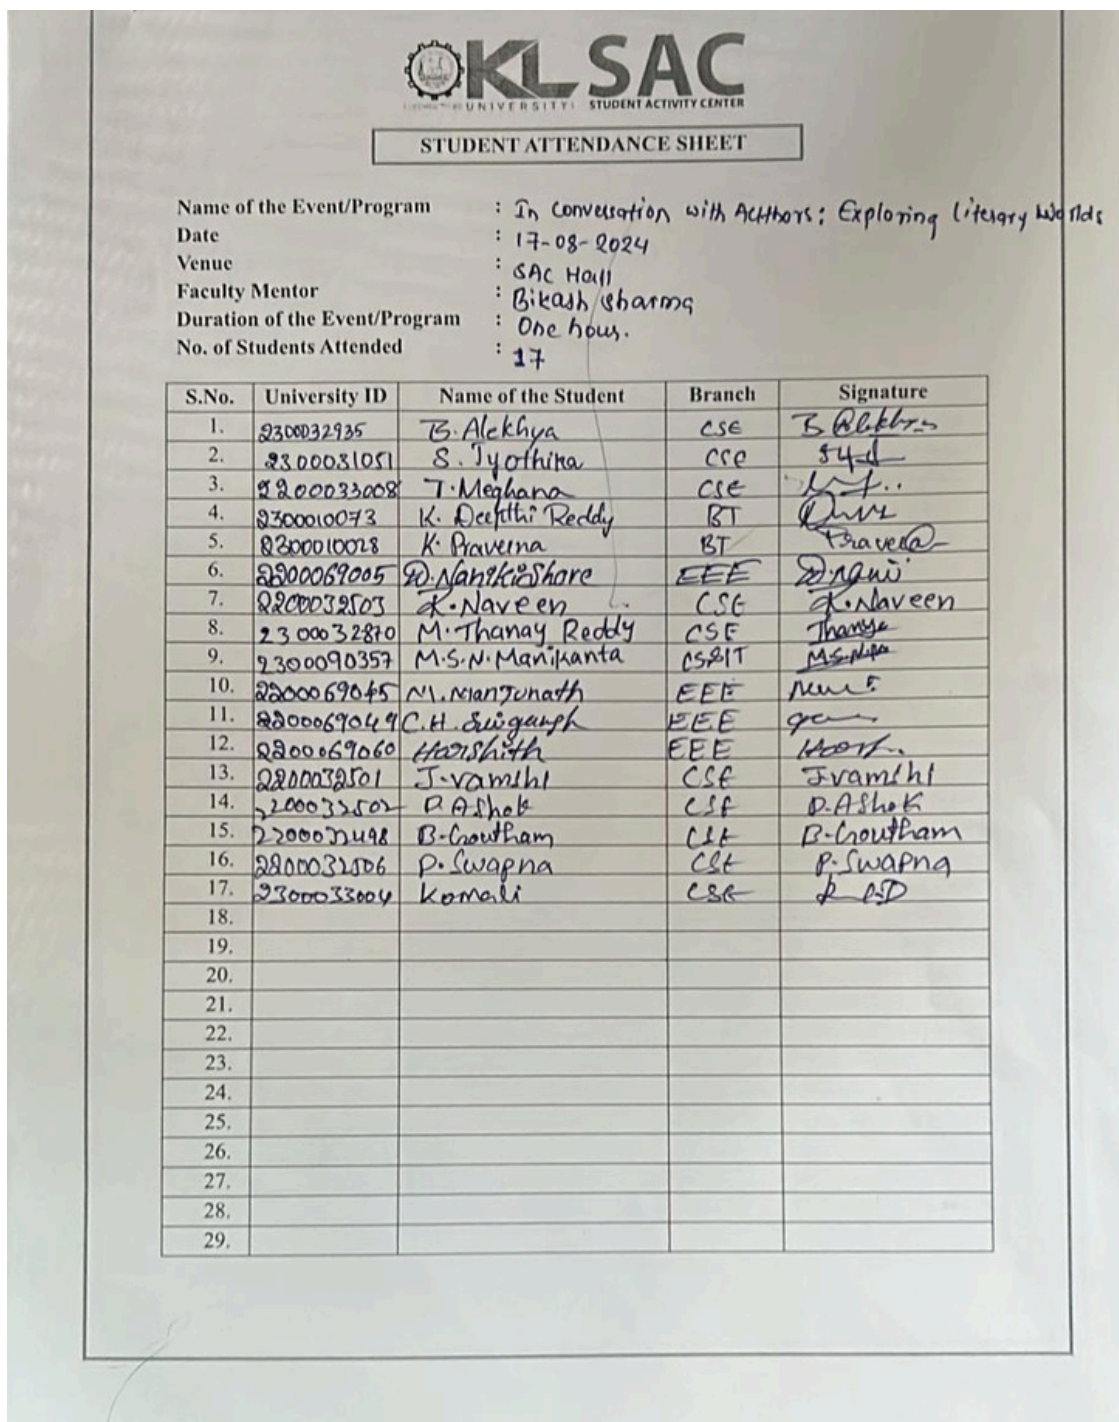 KL SAC
UNIVERSITY STUDENT ACTIVITY CENTER
STUDENT ATTENDANCE SHEET
Name of the Event/Program : In Conversation with Authors: Exploring literary Worlds
Date : 17-08-2024
Venue : SAC Hall
Faculty Mentor : Bikash sharma
Duration of the Event/Program : One hour.
No. of Students Attended : 17
S.No. University ID Name of the Student Branch Signature
1. 2300032935 B. Alekhya CSE B Alekhya
2. 2300031051 S. Jyothika CSE
3. 2200033008 T. Meghana CSE
4. 2300010073 K. Deepthi Reddy BT
5. 2300010028 K. Praveena BT Praveena
6. 2200069005 D. NandKishore EEE
7. 2200032503 K. Naveen CSE K. Naveen
8. 2300032870 M. Thanay Reddy CSE Thanay
9. 2300090357 M.S.N. Manikanta CS&IT
10. 2200069045 M. Manjunath EEE
11. 2200069049 C.H. EEE
12. 2200069060 Harshith EEE
13. 2200032501 J. vamshi CSE J. vamshi
14. 2200032502 D. Ashok CSE D. Ashok
15. 2200032498 B. Goutham CSE B. Goutham
16. 2200032506 P. Swapna CSE P. Swapna
17. 2300033004 Komali CSE
18.
19.
20.
21.
22.
23.
24.
25.
26.
27.
28.
29.